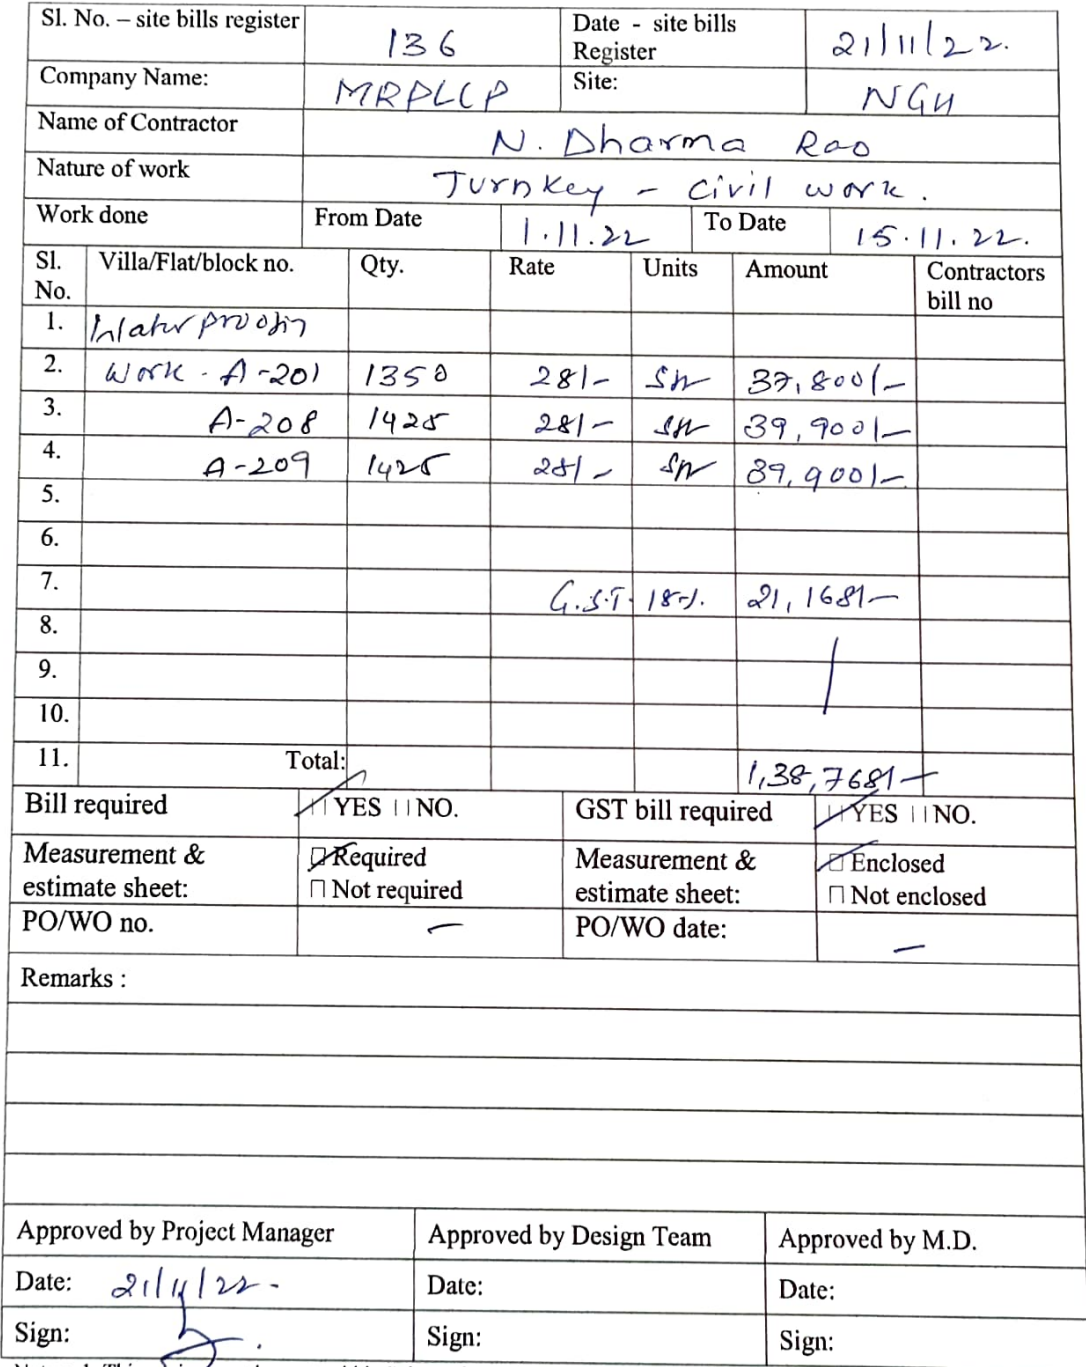 Sl. No. – site bills register 136 Date - site bills Register 21/11/22.
Company Name: MRPLLP Site: NGH
Name of Contractor N. Dharma Rao
Nature of work Turnkey - civil work.
Work done From Date 1.11.22 To Date 15.11.22.
Sl. No. Villa/Flat/block no. Qty. Rate Units Amount Contractors bill no
1. Waterproofin
2. Work - A-201 1350 28/- 37,800/-
3. A-208 1425 28/- 39,900/-
4. A-209 1425 28/- 39,900/-
5.
6.
7. G.S.T. 18%. 21,168/-
8.
9.
10.
11. Total: 1,38,768/-
Bill required YES NO. GST bill required YES NO.
Measurement & estimate sheet: Required Measurement & estimate sheet: Enclosed
Not required Not enclosed
PO/WO no. — PO/WO date: —
Remarks :
Approved by Project Manager Approved by Design Team Approved by M.D.
Date: 21/11/22- Date: Date:
Sign: Sign: Sign: